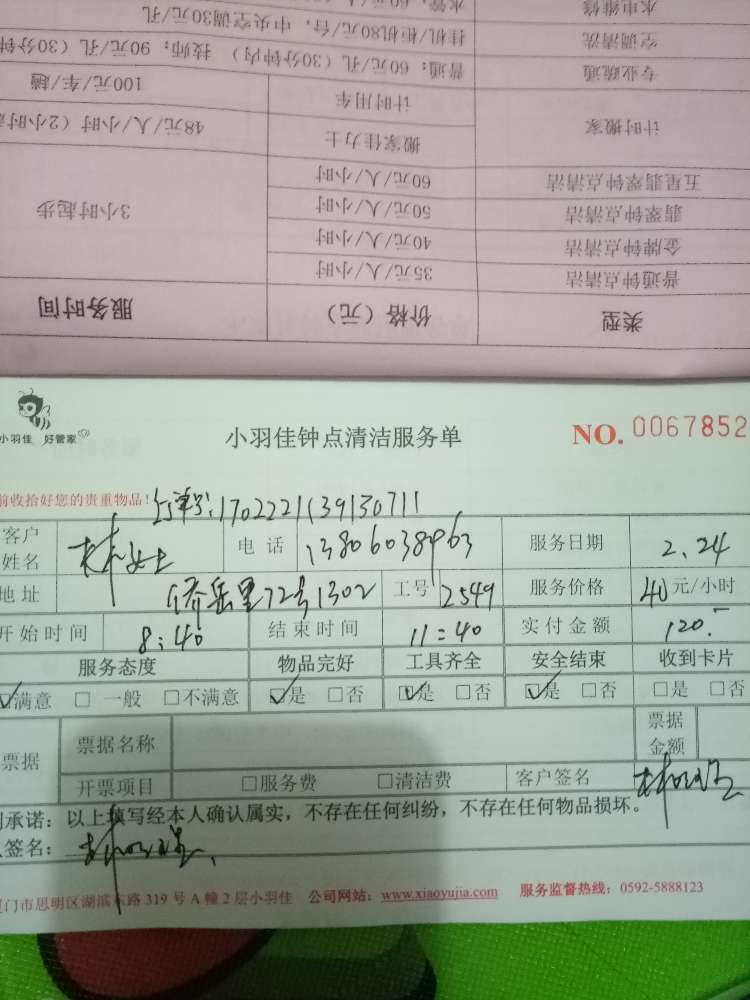 水电维修
水管：60元/人
空调清洗
挂机/柜机80元/台，中央空调30元/孔
专业疏通
普通：60元/孔（30分钟内） 技师：90元/孔（30分钟
计时搬家
计时用车
100元/车/趟
搬家佳力士
48元/人/小时（2小时
五星翡翠钟点清洁
60元/人/小时
翡翠钟点清洁
50元/人/小时
3小时起步
金牌钟点清洁
40元/人/小时
普通钟点清洁
35元/人/小时
类型
价格（元）
服务时间
小羽佳 好管家
小羽佳钟点清洁服务单
NO. 0067852
前收拾好您的贵重物品！
1702221139130711
客户姓名 林女士 电话 13806038963 服务日期 2.24
地址 侨岳里72号1302 工号 2549 服务价格 40元/小时
开始时间 8:40 结束时间 11:40 实付金额 120.-
服务态度 物品完好 工具齐全 安全结束 收到卡片
☑满意 □一般 □不满意 ☑是 □否 ☑是 □否 ☑是 □否 □是 □否
票据 票据名称 票据金额
开票项目 □服务费 □清洁费 客户签名
承诺：以上填写经本人确认属实，不存在任何纠纷，不存在任何物品损坏。
签名：
门市思明区湖滨东路319号A幢2层小羽佳 公司网站：www.xiaoyujia.com 服务监督热线：0592-5888123